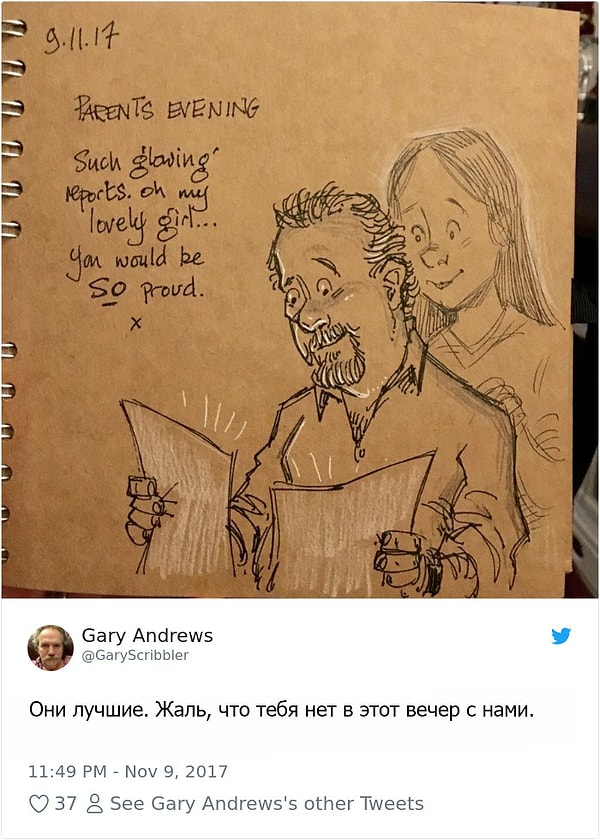 9.11.17
PARENTS EVENING
Such glowing
reports. oh my
lovely girl...
You would be
SO proud.
x
Gary Andrews
@GaryScribbler
Они лучшие. Жаль, что тебя нет в этот вечер с нами.
11:49 PM - Nov 9, 2017
37 See Gary Andrews's other Tweets